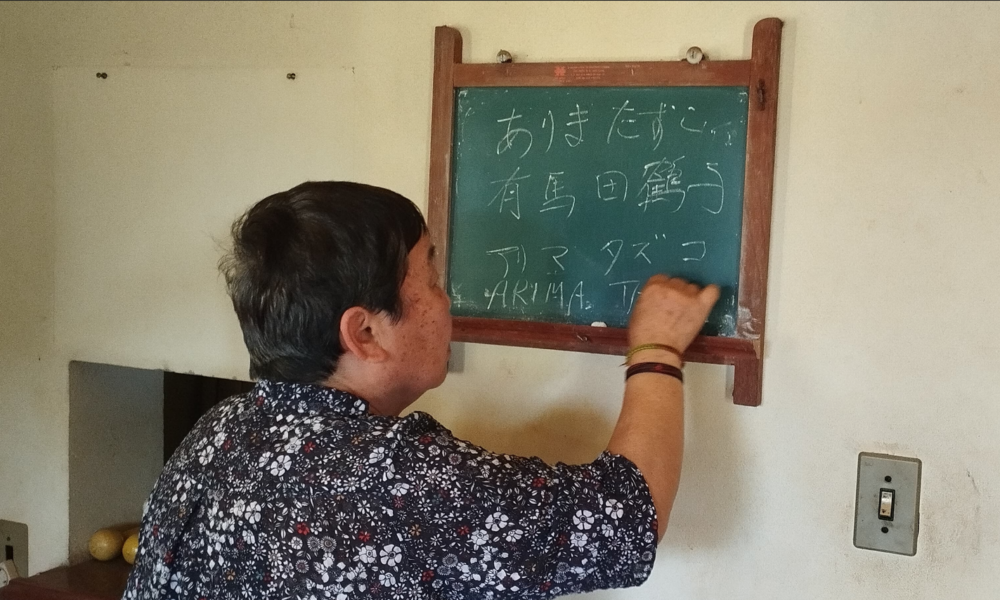 ありま たずこ
有馬 田鶴子
アリマ タズコ
ARIMA T